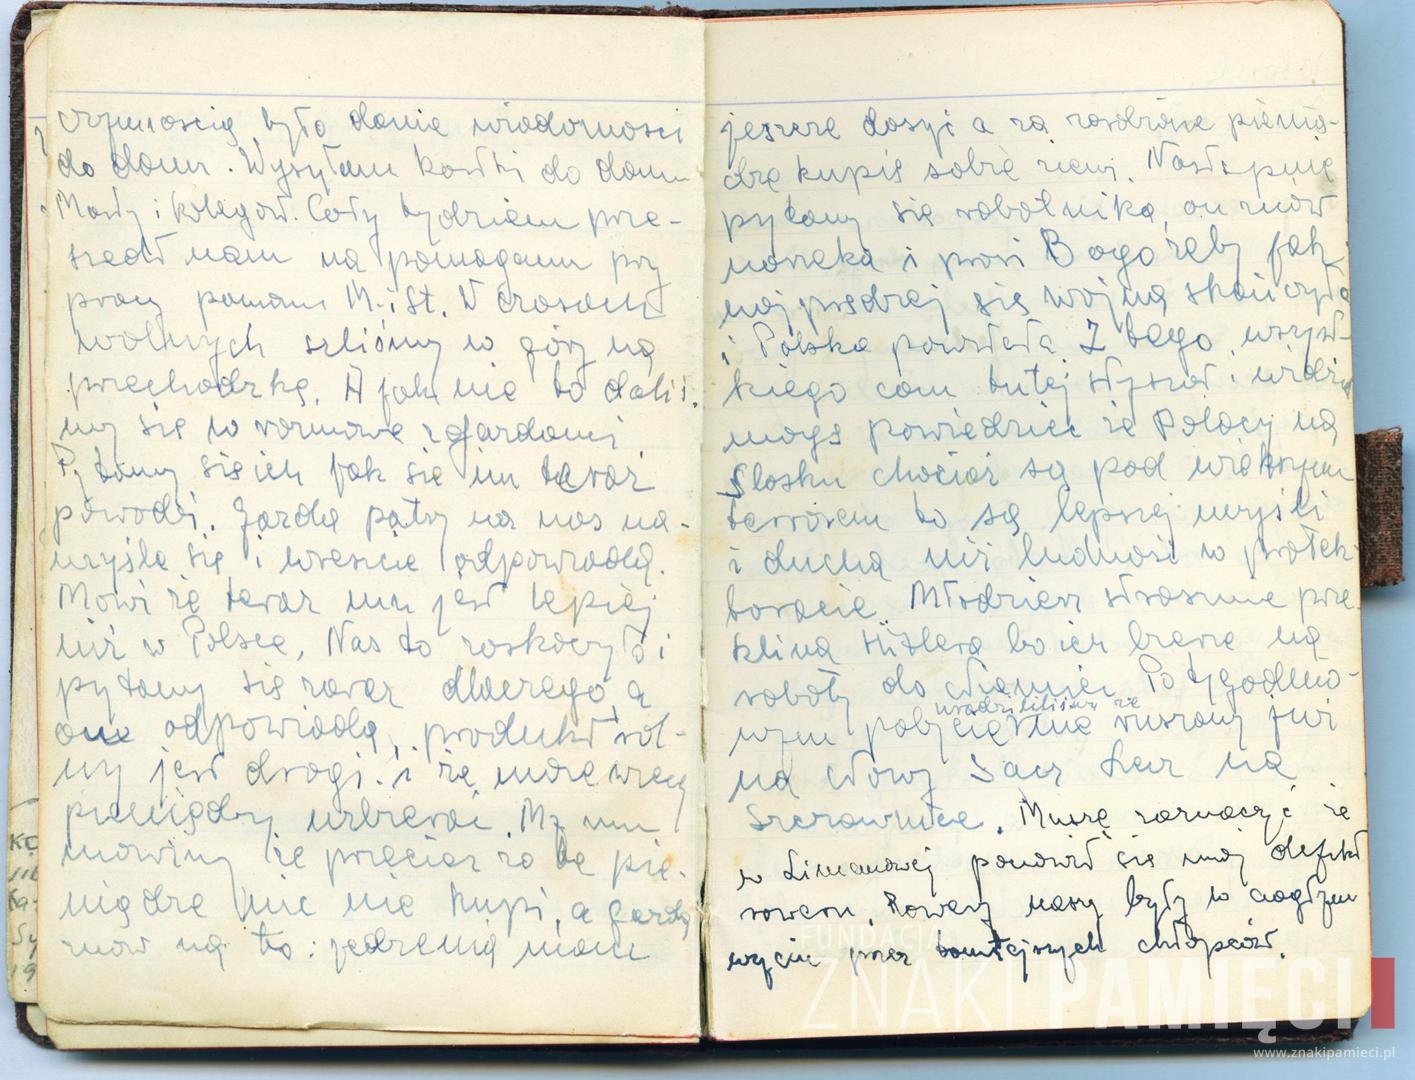 czynnością było danie wiadomości
do domu. Wysyłam kartki do domu
Mamy i kolegów. Cały tydzień prze-
szedł nam na pomaganiu przy
pracy panom M. i St. W czasach
wolnych szliśmy w góry na
przechadzkę. A jak nie to daliś.
my się w rozmowę z Gardami
Pytamy się ich jak się im teraz
powodzi. Garda patrzy na nas na-
myśla się i wreszcie odpowiada.
Mówi że teraz mu jest lepiej
niż w Polsce. Nas to zaskoczyło i
pytamy się zaraz dlaczego, a
one odpowiada, produkt rol-
ny jest drogi i że może więcej
pieniędzy uzbierać. My mu
mówimy że przecież za te pie-
niądze nic nie kupi, a Garda
znów na to: jedzenia mam
jeszcze dosyć a za zarobione pienią-
dze kupię sobie ziemi. Następnie
pytamy się robotnika, on znów
narzeka i prosi Boga, żeby jak
najprędzej się wojna skończyła
i Polska powstała. Z tego wszyst-
kiego com tutaj słyszał i widział
mogę powiedzieć że Polacy na
Śląsku chociaż są pod większym
terrorem to są lepszej myśli
i ducha niż ludność w protek-
toracie. Młodzież strasznie prze-
klina Hitlera bo ich bierze na
roboty do Niemiec. Po tygodnio-
uradziliśmy że
wym pobycie ruszamy już
na Nowy Sącz hen na
Szczawnicę. Muszę zaznaczyć że
w Limanowej ponowił się mój defekt
roweru. Rowery nasze były w ciągłym
użyciu przez tamtejszych chłopców.
FUNDACJA
ZNAKI PAMIĘCI
www.znakipamieci.pl